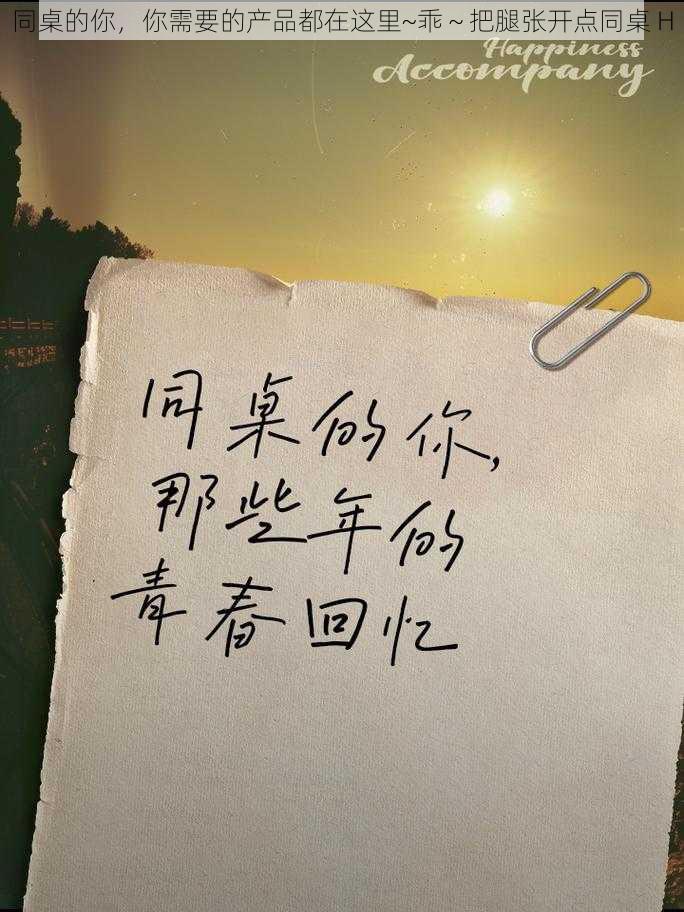 同桌的你，你需要的产品都在这里~乖～把腿张开点同桌 H
Happiness
Accompany
同桌的你,
那些年的
青春回忆